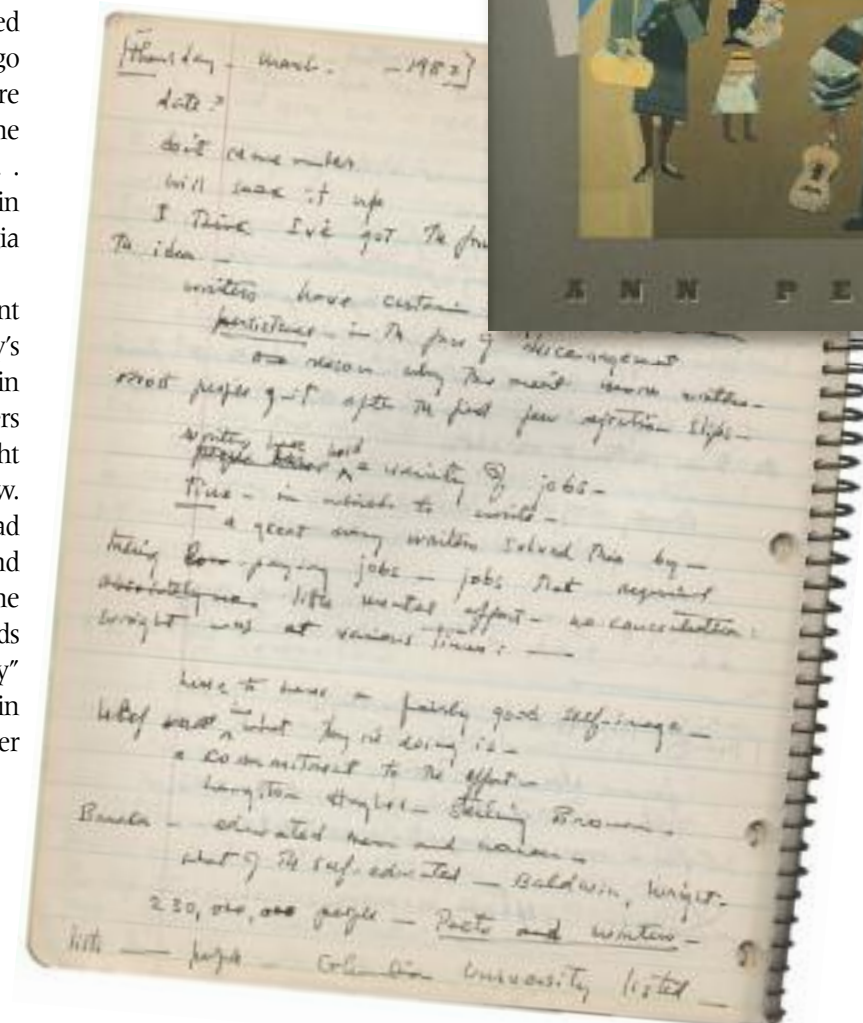 ed
go
re
ne
. .
in
ia
nt
y's
in
ers
ht
w.
ad
nd
ne
ds
y"
in
er
ANN PE
Thursday - March - - 198
date?
don't remember
will look it up
I think I've got the
the idea -
writers have certain
persistence - in the face of discouragement
one reason why there aren't more writers -
most people quit after the first few rejection slips -
writers have held a variety of jobs -
Time - in which to write -
a great many writers solved this by -
taking low-paying jobs - jobs that required
absolutely no little mental effort - no concentration:
Wright was at various times: —
have to have a fairly good self-image -
belief in what they're doing is -
a commitment to the effort -
Langston Hughes - Sterling Brown -
educated men and women -
what of the self-educated — Baldwin, Wright -
230,000,000 people - Poets and Writers -
lists — people - Columbia University listed —